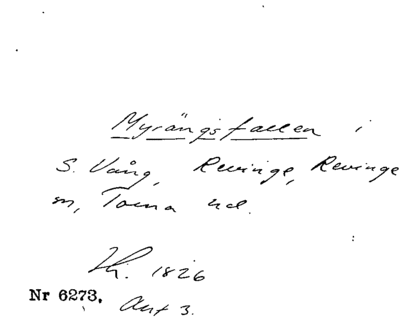 Myrängsfallen i
S. Vång, Revinge, Revinge
sn, Torna hd.
Hi. 1826
Nr 6273. Akt 3.